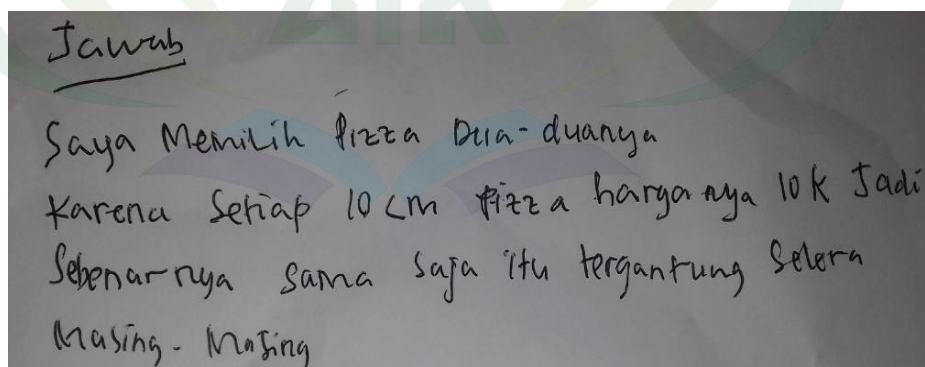 Jawab
Saya Memilih Pizza Dua-duanya
Karena Setiap 10 cm Pizza harganya 10 K Jadi
Sebenarnya sama saja itu tergantung Selera
Masing-Masing